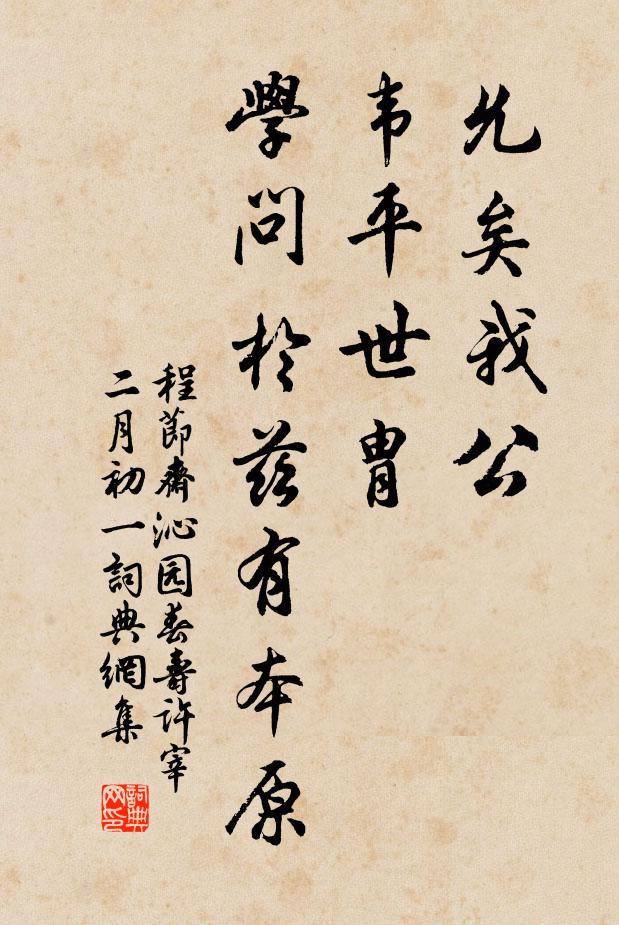 允矣我公
韦平世胄
學問於茲有本原
程節齋沁园春壽許宰
二月初一詞典網集
詞典网印